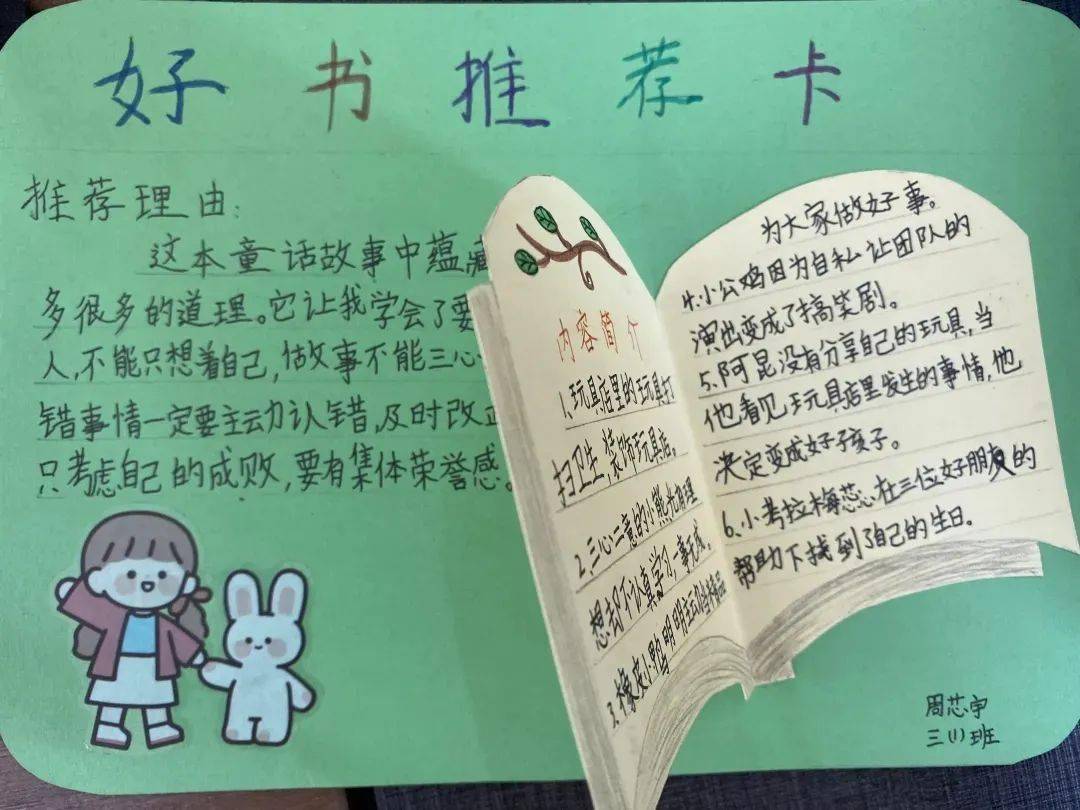 好书推荐卡
推荐理由:
这本童话故事中蕴藏
多很多的道理。它让我学会了要
人,不能只想着自己,做故事不能三心
错事情一定要主动认错,及时改正
只考虑自己的成败,要有集体荣誉感。
内容简介
1.玩具店里的玩具打
扫卫生,装饰玩具店。
2.三心二意的小熊光有理
想却不认真学习,一事无成。
3.橡皮小鸭明明主动当奖品
为大家做好事。
4.小公鸡因为自私让团队的
演出变成了搞笑剧。
5.阿昆没有分享自己的玩具,当
他看见玩具店里发生的事情,他
决定变成好孩子。
6.小考拉梅蕊在三位好朋友的
帮助下找到了自己的生日。
周芯宇
三(1)班